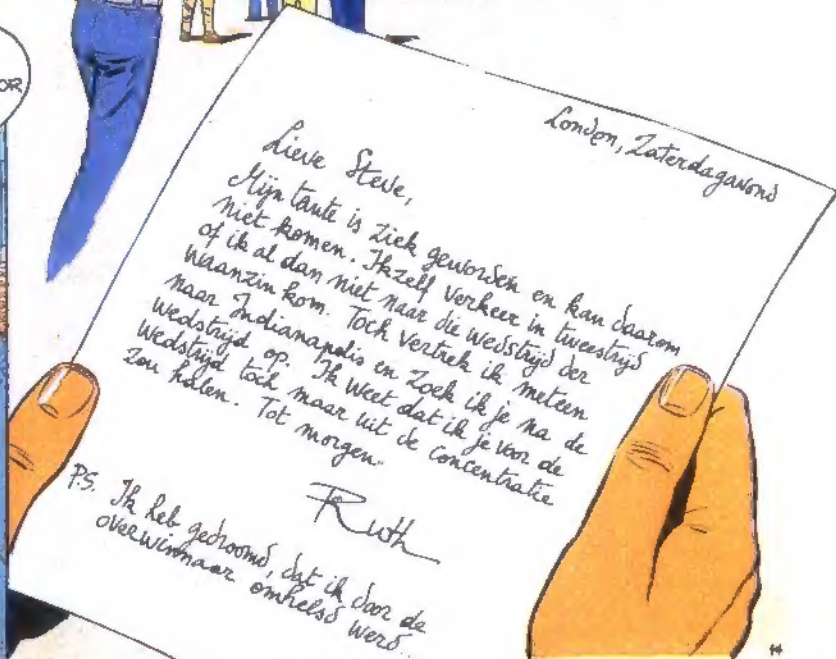 OR
London, Zaterdagavond
Lieve Steve,
Mijn tante is ziek geworden en kan daarom
niet komen. Ikzelf verkeer in tweestrijd
of ik al dan niet naar die wedstrijd der
waanzin kom. Toch vertrek ik meteen
naar Indianapolis en zoek ik je na de
wedstrijd op. Ik weet dat ik je voor de
wedstrijd toch maar uit de concentratie
zou halen. Tot morgen.
Ruth
PS. Ik heb gedroomd, dat ik door de
overwinnaar omhelsd werd...
14